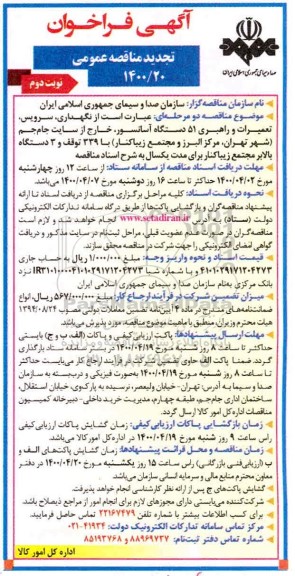 آگهی فراخوان
تجدید مناقصه عمومی
۱۴۰۰/۲۰
نوبت دوم
صدا و سیمای جمهوری اسلامی ایران
نام سازمان مناقصه‌گزار: سازمان صدا و سیمای جمهوری اسلامی ایران
موضوع مناقصه دو مرحله‌ای: عبارت است از نگهداری، سرویس،
تعمیرات و راهبری ۵۱ دستگاه آسانسور، خارج از سایت جام‌جم
(شهر تهران، مرکز البرز و مجتمع زیباکنار) با ۳۳۹ توقف و ۳ دستگاه
بالابر مجتمع زیباکنار برای مدت یکسال به شرح اسناد مناقصه
مهلت دریافت اسناد مناقصه از سامانه ستاد: از ساعت ۱۲ روز چهارشنبه
مورخ ۱۴۰۰/۰۴/۰۲ حداکثر تا ساعت ۱۶ روز دوشنبه مورخ ۱۴۰۰/۰۴/۰۷ می‌باشد.
نحوه دریافت اسناد: کلیه مراحل برگزاری مناقصه از دریافت اسناد تا ارائه
پیشنهاد مناقصه‌گران و بازگشایی پاکت‌ها از طریق درگاه سامانه تدارکات الکترونیکی
دولت (ستاد) به آدرس www.setadiran.ir انجام خواهد شد و لازم است
مناقصه‌گران در صورت عدم عضویت قبلی، مراحل ثبت‌نام در سایت مذکور و دریافت
گواهی امضای الکترونیکی را جهت شرکت در مناقصه محقق سازند.
قیمت اسناد و نحوه واریز وجه: مبلغ ۱/۰۰۰/۰۰۰ ریال به حساب جاری
بانک مرکزی به‌نام سازمان صدا و سیمای جمهوری اسلامی ایران
میزان تضمین شرکت در فرآیند ارجاع کار: مبلغ ۵۶۷/۰۰۰/۰۰۰ ریال، انواع
ضمانت‌نامه‌های مندرج در ماده ۴ آیین‌نامه تضمین معاملات دولتی مصوب ۱۳۹۴/۰۹/۲۴
هیات محترم وزیران، منطبق با ماهیت موضوع مناقصه، مورد پذیرش می‌باشد.
مهلت ارسال پیشنهادها: پاکت ارزیابی کیفی و پاکات (الف، ب و ج) بایستی
حداکثر تا ساعت ۸ روز شنبه مورخ ۱۴۰۰/۰۴/۱۹ در سامانه ستاد بارگذاری
گردد. ضمنا پاکت الف حاوی تضمین شرکت در فرآیند ارجاع کار می‌بایست حداکثر
تا ساعت ۸ روز شنبه مورخ ۱۴۰۰/۰۴/۱۹ به‌صورت فیزیکی و دربسته به سازمان
صدا و سیما به آدرس: تهران- خیابان ولیعصر، نرسیده به پارک‌وی، خیابان استقلال،
ساختمان اداری جام‌جم، طبقه چهارم، مدیریت خرید داخلی- دبیرخانه کمیسیون
مناقصات اداره کل امور کالا ارسال گردد.
زمان بازگشایی پاکات ارزیابی‌کیفی: زمان گشایش پاکات ارزیابی‌کیفی
راس ساعت ۹ روز شنبه مورخ ۱۴۰۰/۰۴/۱۹ در اداره کل امور کالا می‌باشد.
زمان مناقصه و محل قرائت پیشنهادها: زمان گشایش پاکت‌های الف و
ب (ارزیابی‌فنی بازرگانی) راس ساعت ۱۵ روز یکشنبه مورخ ۱۴۰۰/۰۴/۲۰ در دفتر
معاون محترم منابع مالی و سرمایه انسانی سازمان می‌باشد.
گشایش پاکت‌های ج پس از ارائه نظر کارشناسی انجام خواهد پذیرفت.
شرکت‌کننده می‌بایستی دارای مجوزهای لازم برای انجام امور از مراجع ذیصلاح باشد.
برای کسب اطلاعات بیشتر با شماره تلفن ۲۲۱۶۷۴۷۹ تماس حاصل فرمایید.
مرکز تماس سامانه تدارکات الکترونیک دولت: ۴۱۹۳۴-۰۲۱
شماره تماس دفتر ثبت‌نام: ۸۸۹۶۹۷۳۷ و ۸۵۱۹۳۷۶۸
اداره کل امور کالا